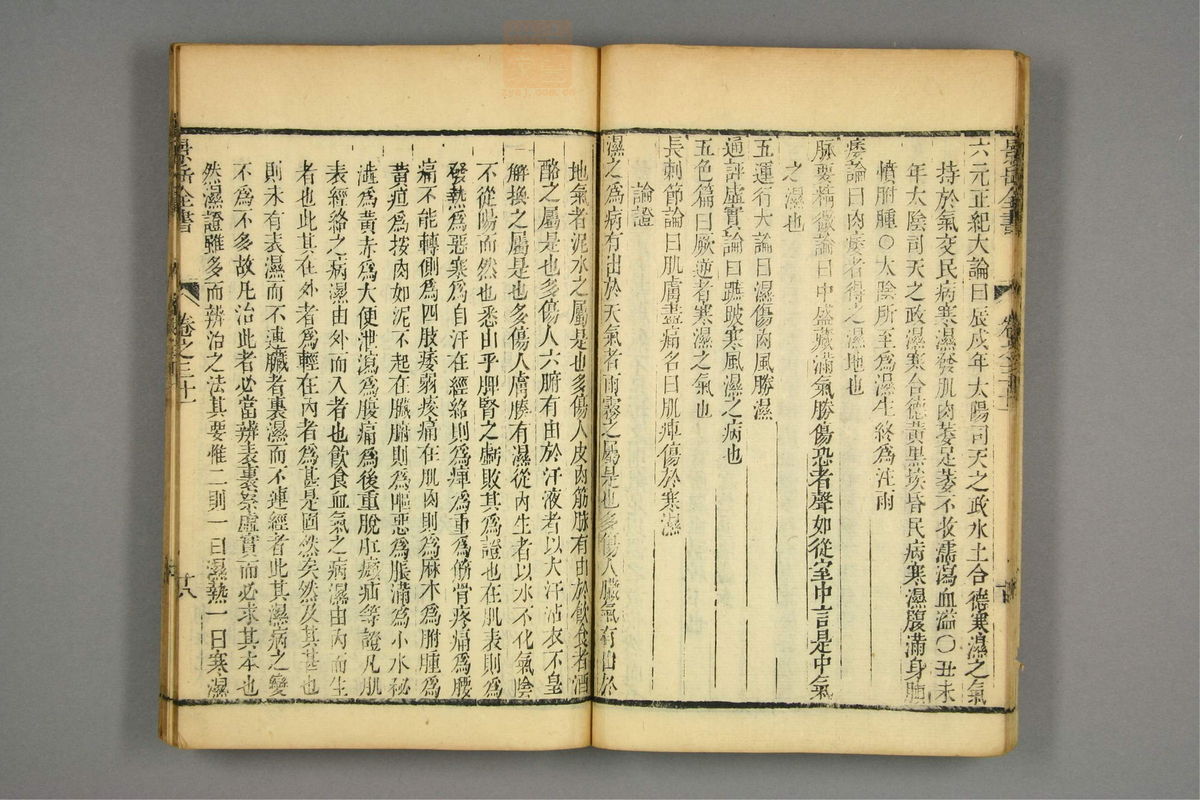 六元正紀大論曰辰戌年太陽司天之政水土合德寒濕之氣
持於氣交民病寒濕發肌肉萎足萎不收濡瀉血溢〇丑未
年太陰司天之政濕寒合德黃黑埃昏民病寒濕腹滿身䐜
憤胕腫〇太陰所至爲濕生終爲注雨
痿論曰肉痿者得之濕地也
脉要精微論曰中盛臟滿氣勝傷恐者聲如從室中言是中氣
之濕也
五運行大論曰濕傷肉風勝濕
通評虛實論曰蹠跛寒風濕之病也
五色篇曰厥逆者寒濕之氣也
長刺節論曰肌膚盡痛名曰肌痺傷於寒濕
論證
濕之爲病有出於天氣者雨霧之屬是也多傷人臟氣有出於
地氣者泥水之屬是也多傷人皮肉筋脉有由於飲食者酒
酪之屬是也多傷人六腑有由於汗液者以大汗沾衣不皇
解換之屬是也多傷人膚腠有濕從內生者以水不化氣陰
不從陽而然也悉由乎脾腎之虧敗其爲證也在肌表則爲
發熱爲惡寒爲自汗在經絡則爲痺爲重爲筋骨疼痛爲腰
痛不能轉側爲四肢痿弱痠痛在肌肉則爲麻木爲胕腫爲
黃疸爲按肉如泥不起在臟腑則爲嘔惡爲脹滿爲小水秘
澁爲黃赤爲大便泄瀉爲腹痛爲後重脫肛㿗疝等證凡肌
表經絡之病濕由外而入者也飲食血氣之病濕由內而生
者也此其在外者爲輕在內者爲甚是固然矣然及其甚也
則未有表濕而不連臟者裏濕而不連經者此其濕病之變
不爲不多故凡治此者必當辨表裏察虛實而必求其本也
然濕證雖多而辨治之法其要惟二則一曰濕熱一曰寒濕
景岳全書
卷之三十一
廿八
景岳全書